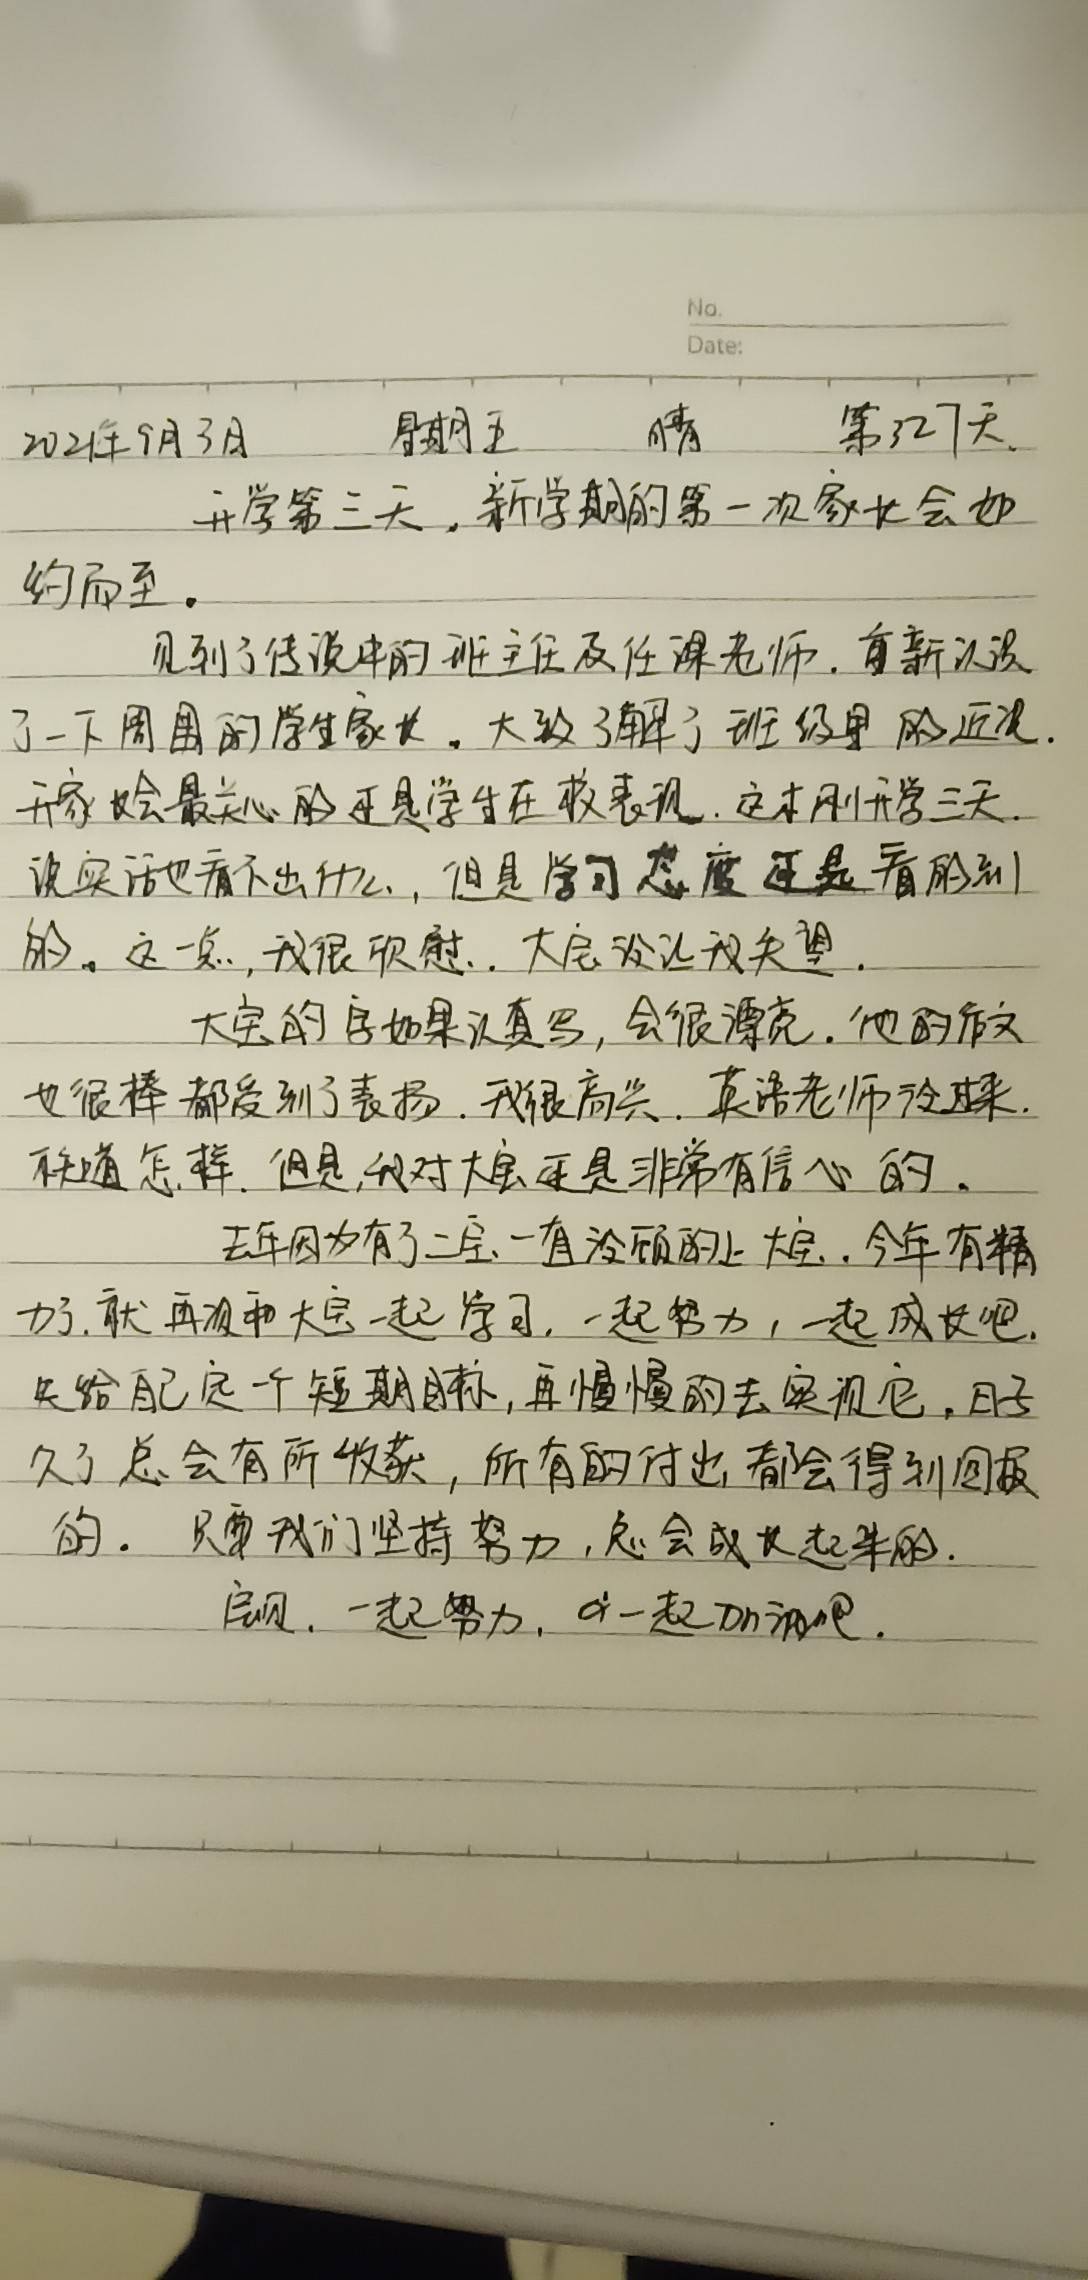 No.
Date:
2021年9月3月 星期五 晴 第327天.
开学第三天。新学期的第一次家长会如
约而至。
见到了传说中的班主任及任课老师.重新认识
了一下周围的学生家长。大致了解了班级里的近况.
开家长会最关心的还是学生在校表现.这才刚开学三天.
说实话也看不出什么,但是学习态度还是看的到
的。这一点,我很欣慰..大宝没让我失望.
大宝的字如果认真写,会很漂亮.他的作文
也很棒都受到了表扬.我很高兴.英语老师没过来.
不知道怎样.但是,我对大宝还是非常有信心的。
去年因为有了二宝、一直没顾的上大宝..今年有精
力了.就再次和大宝一起学习.一起努力,一起成长吧.
先给自己定一个短期目标,再慢慢的去实现它.日子
久了总会有所收获,所有的付出,都会得到回报
的.只要我们坚持努力,总会成长起来的.
宝贝.一起努力,一起加油吧.